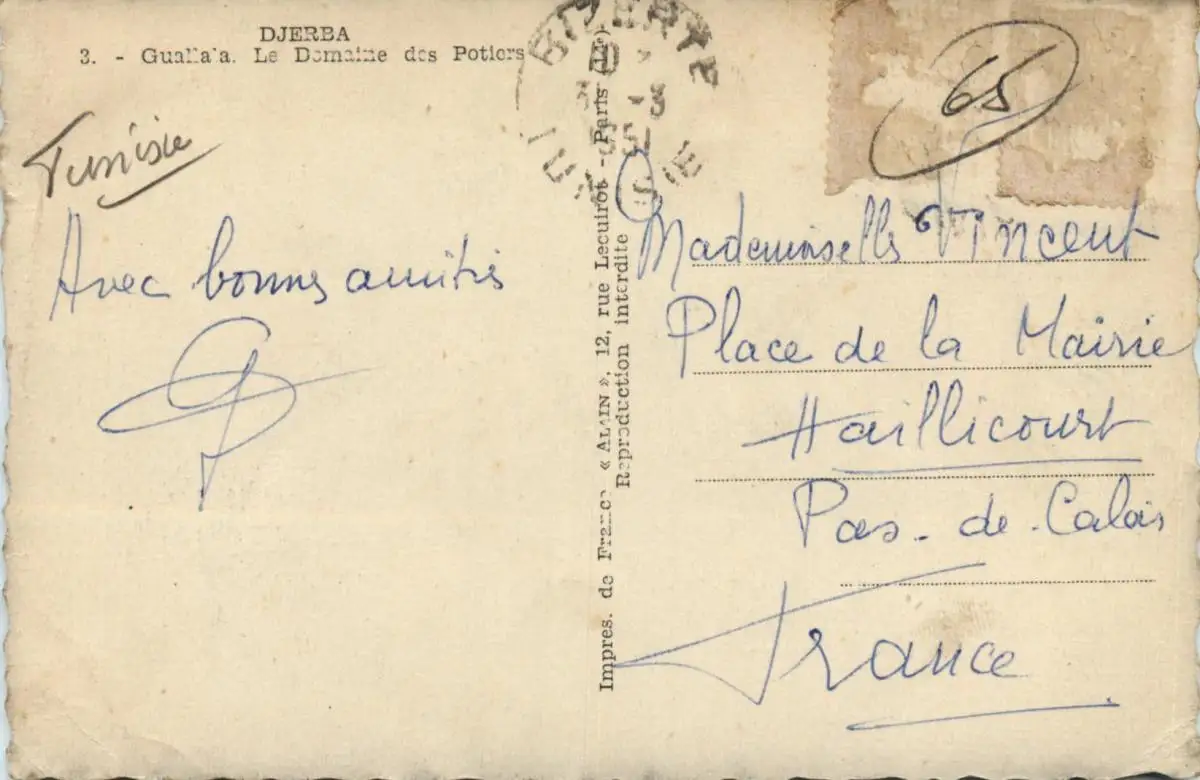 DJERBA
3. - Guallala. Le Domaine des Potiers
Tunisie
Avec bonnes amitiés
BIZERTE
TUNISIE
65
Mademoiselle Vincent
Place de la Mairie
Haillicourt
Pas-de-Calais
France
Impres. de France « ALAIN », 12, rue Lecuirot - Paris
Reproduction interdite